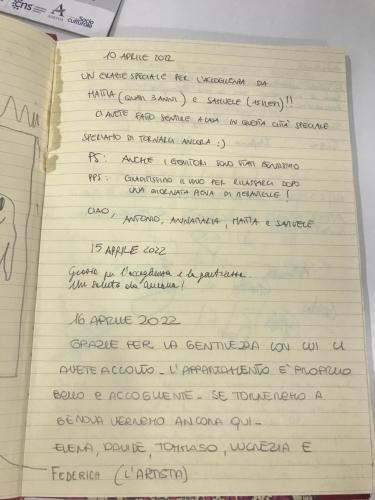 cns
A
socio
culturali
10 APRILE 2022
UN GRAZIE SPECIALE PER L'ACCOGLIENZA DA
MATTIA (QUASI 3 ANNI) E SAMUELE (15 MESI)!!
CI AVETE FATTO SENTIRE A CASA IN QUESTA CITTÀ SPECIALE
SPERIAMO DI TORNARCI ANCORA :)
PS: ANCHE I GENITORI SONO STATI BENISSIMO
PPS: IL VINO PER RILASSARCI DOPO
UNA GIORNATA PIENA DI MERAVIGLIE!
CIAO,
ANTONIO, ANNAMARIA, MATTIA E SAMUELE
15 APRILE 2022
Grazie per l'accoglienza e la
Un saluto da
16 APRILE 2022
GRAZIE PER LA GENTILEZZA CON CUI CI
AVETE ACCOLTO - L'APPARTAMENTO È PROPRIO
BELLO E ACCOGLIENTE - SE TORNEREMO A
GENOVA VERREMO ANCORA QUI -
ELENA, DAVIDE, TOMMASO, LUCREZIA E
FEDERICA (L'ARTISTA)